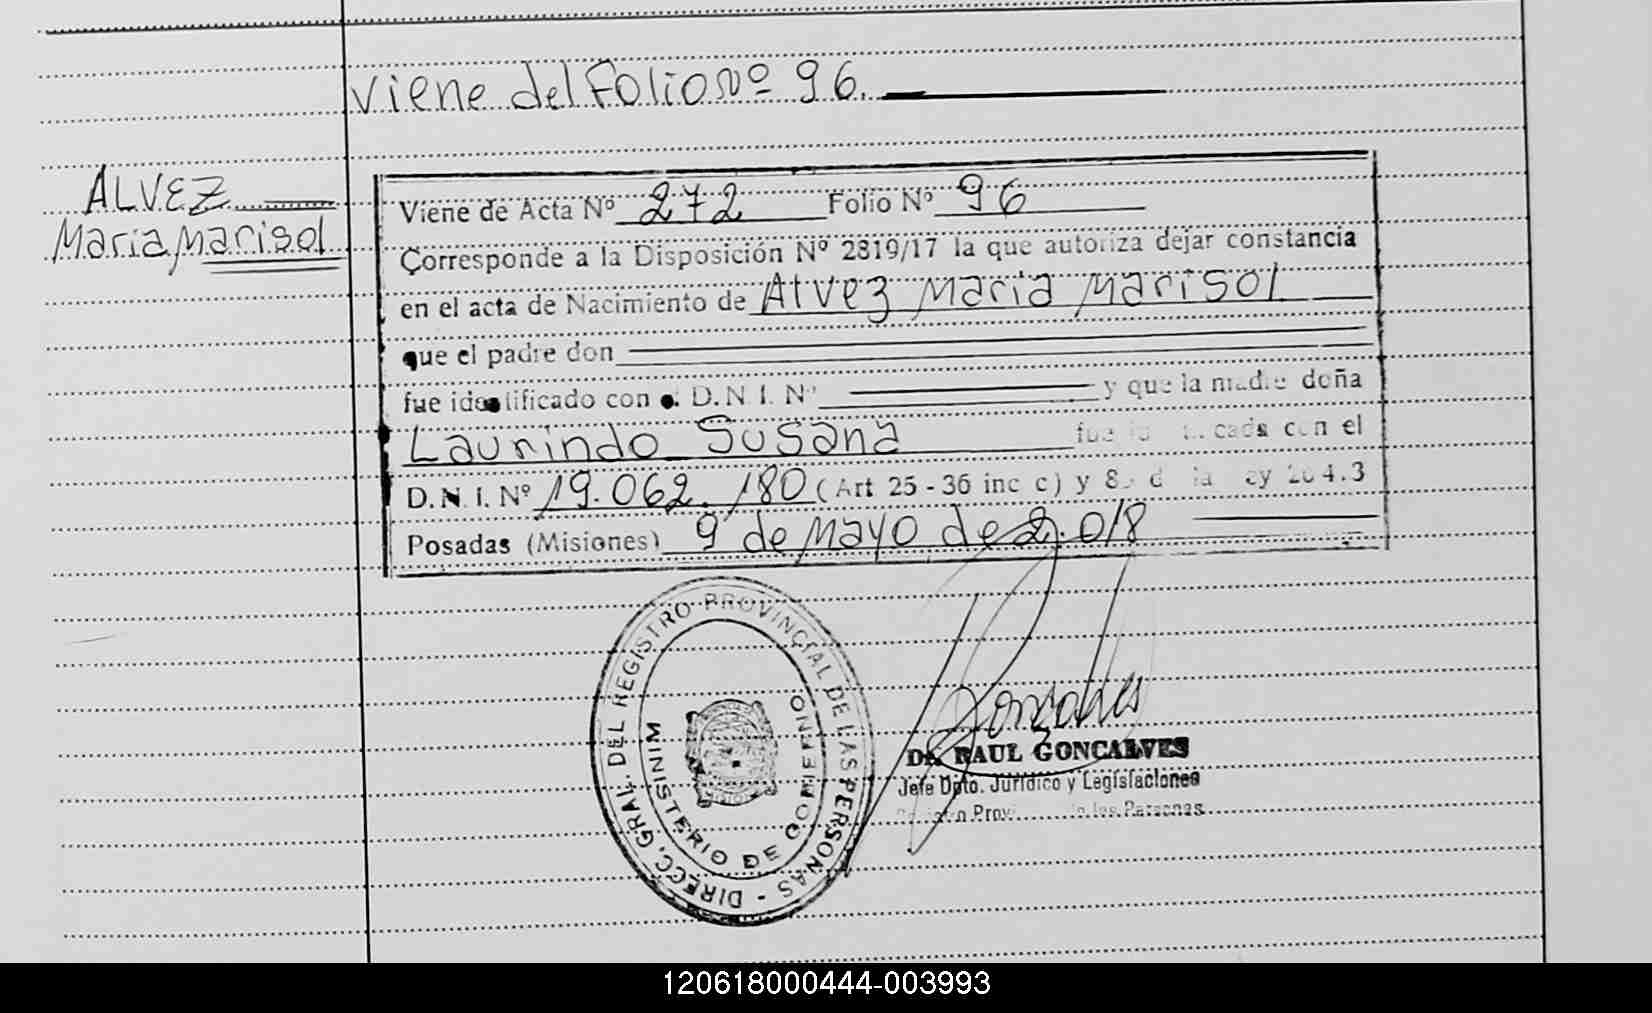 Viene del Folio Nº 96.
ALVEZ
Maria Marisol
Viene de Acta Nº 272 Folio Nº 96
Corresponde a la Disposición Nº 2819/17 la que autoriza dejar constancia
en el acta de Nacimiento de Alvez Maria Marisol
que el padre don
fue identificado con el D.N.I. Nº y que la madre doña
Laurindo Susana fue cada con el
D.N.I. Nº 19.062.180 (Art 25 - 36 inc c) y
Posadas (Misiones) 9 de Mayo de 2.018
DIRECC. GRAL. DEL REGISTRO PROVINCIAL DE LAS PERSONAS -
MINISTERIO DE GOBIERNO
Goncalves
Dr. RAUL GONCALVES
Jefe Dpto. Jurídico y Legislaciones
de las Personas
120618000444-003993